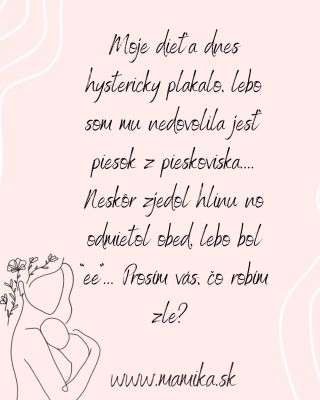 Moje dieťa dnes
hystericky plakalo, lebo
som mu nedovolila jesť
piesok z pieskoviska....
Neskôr zjedol hlinu no
odmietol obed, lebo bol
"ee"... Prosím vás, čo robím
zle?
www.mamika.sk